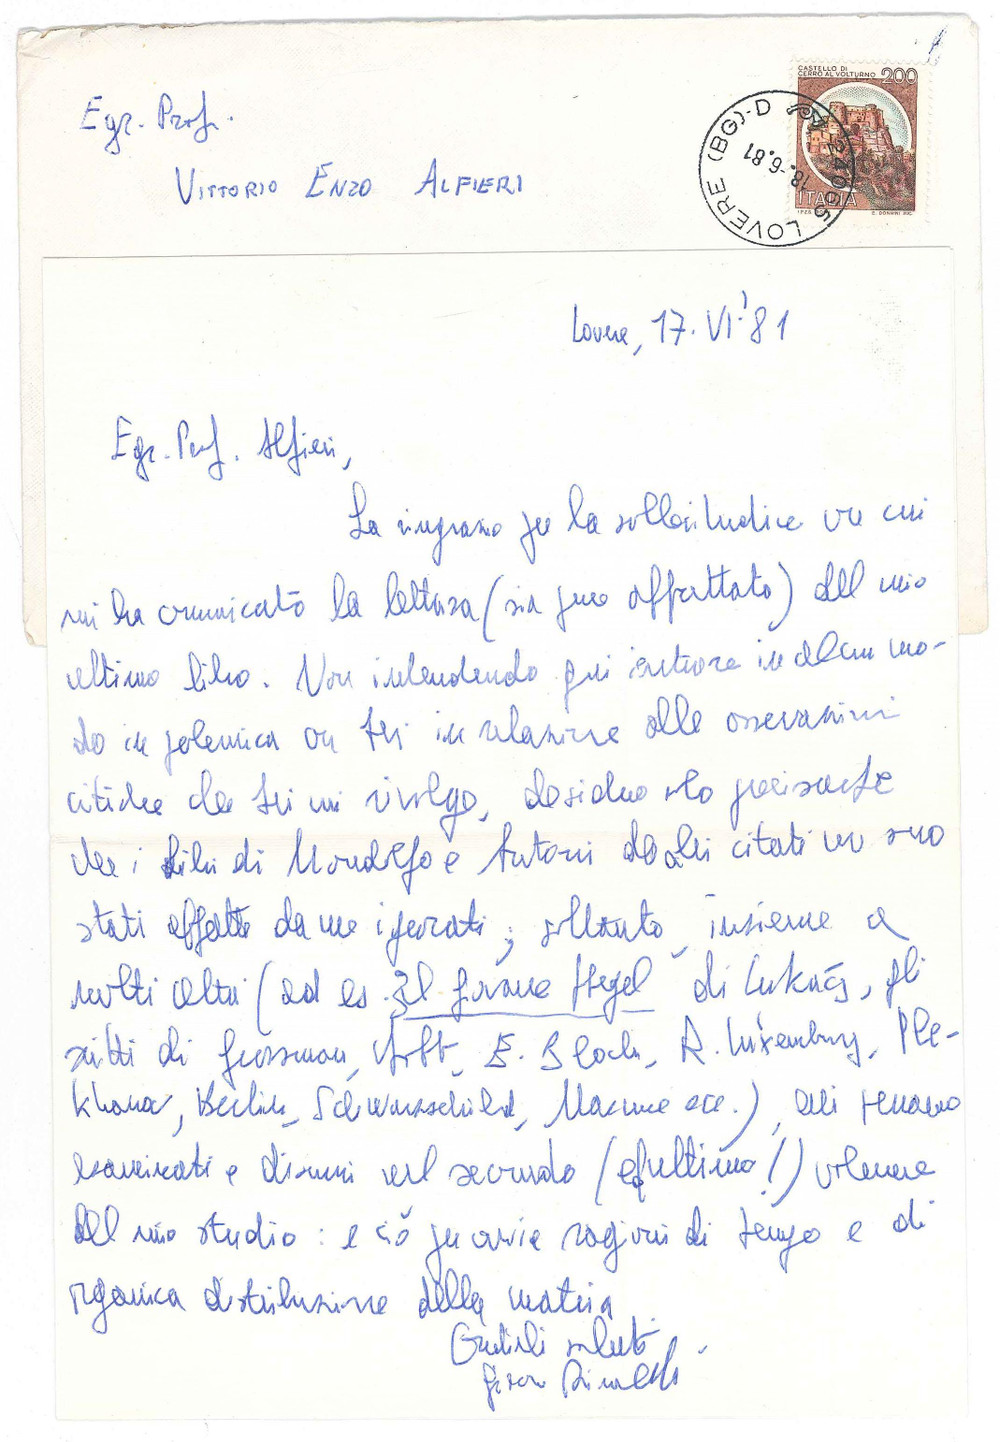 Egr. Prof.
VITTORIO ENZO ALFIERI
CASTELLO DI
CERRO AL VOLTURNO 200
ITALIA
I.P.Z.S. E. DONNINI INC.
24065 LOVERE (BG)-D
18.-6.81
Lovere, 17. VI. '81
Egr. Prof. Alfieri,
La ringrazio per la sollecitudine con cui
mi ha comunicato la lettura (sia pure affrettata) del mio
ultimo libro. Non intendendo qui entrare in alcun mo-
do in polemica con Lei in relazione alle osservazioni
critiche che Lei mi rivolge, desidero solo precisarLe
che i libri di Mondolfo e Antoni da Lei citati non sono
stati affatto da me ignorati; soltanto, insieme a
molti altri (ad es. Il giovane Hegel di Lukács, gli
scritti di Grossman, E. Bloch, R. Luxemburg, Ple-
khanov, Berlin, Schwarzschild, ecc.), essi saranno
esaminati e discussi nel secondo (e ultimo!) volume
del mio studio: e ciò per ovvie ragioni di tempo e di
organica distribuzione della materia.
Cordiali saluti